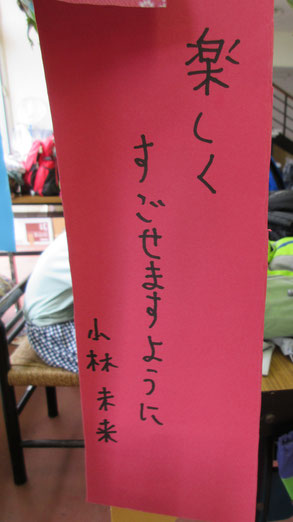 楽しく
すごせますように
小林未来